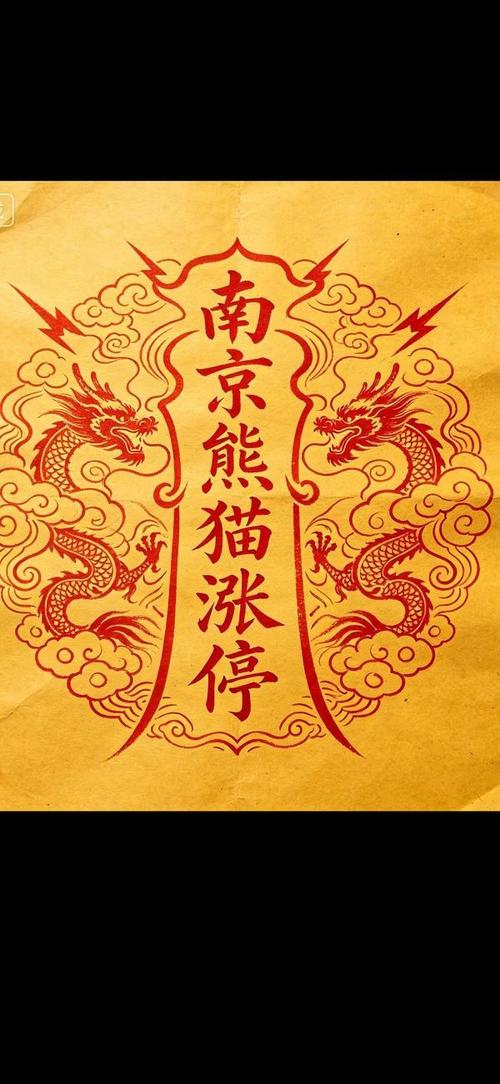 南京熊猫涨停